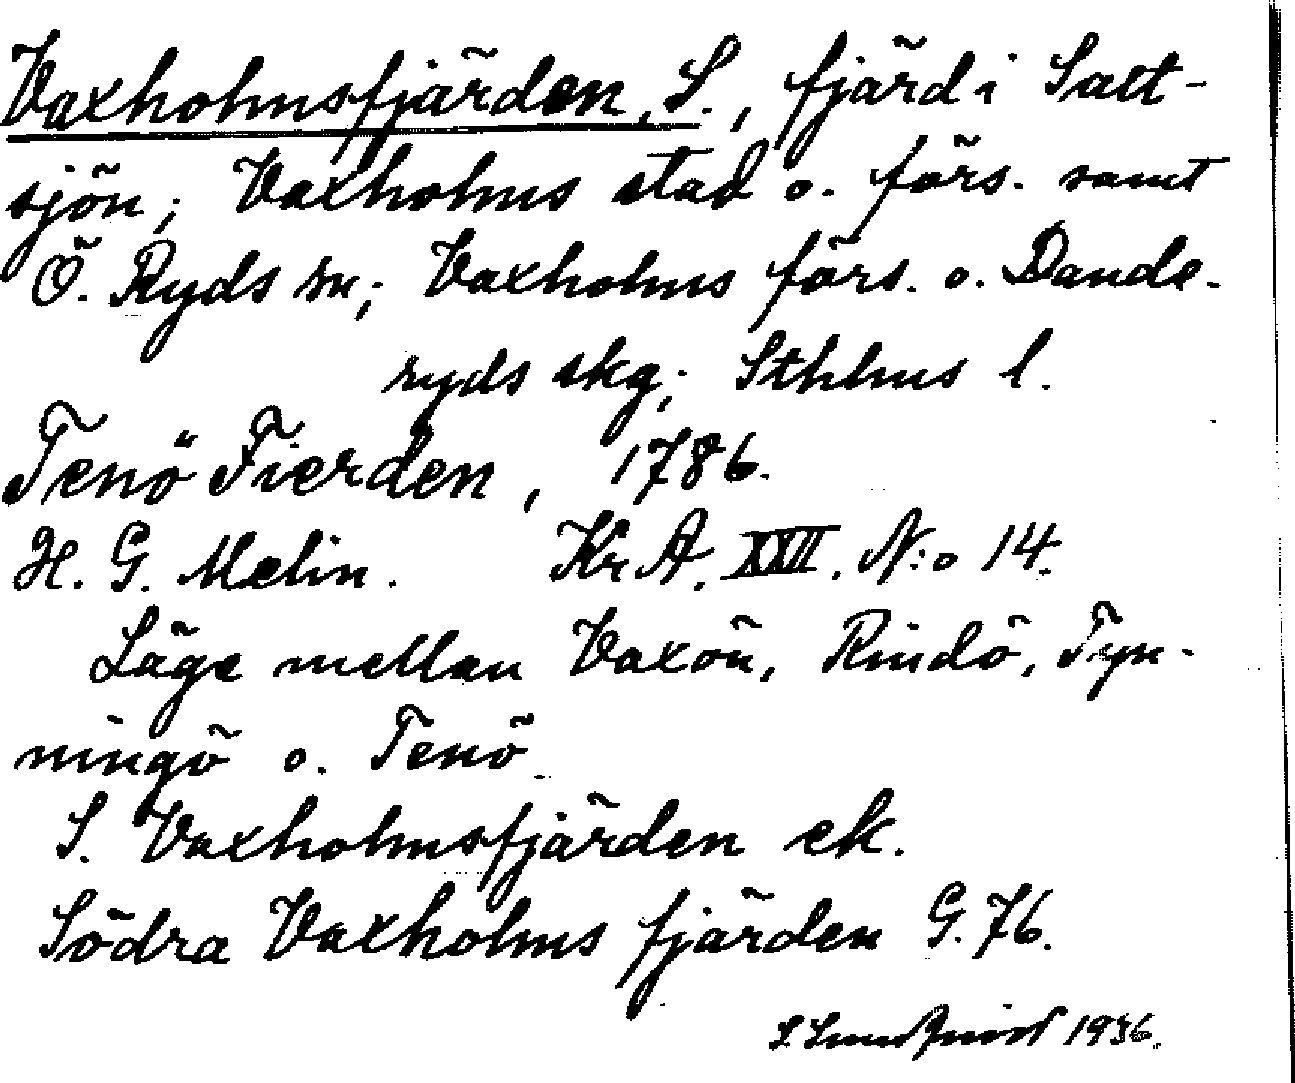 Vaxholmsfjärden, S., fjärd i Salt-
sjön; Vaxholms stad o. förs. samt
Ö. Ryds sn; Vaxholms förs. o. Dande-
ryds skg; Sthlms l.
Tenö Fierden, 1786.
H. G. Melin. Kr A. XXII. N:o 14.
Läge mellan Vaxön, Rindö, Tyn-
ningö o. Tenö
S. Vaxholmsfjärden ek.
Södra Vaxholms fjärden G. 76.
S Lundqvist 1936.